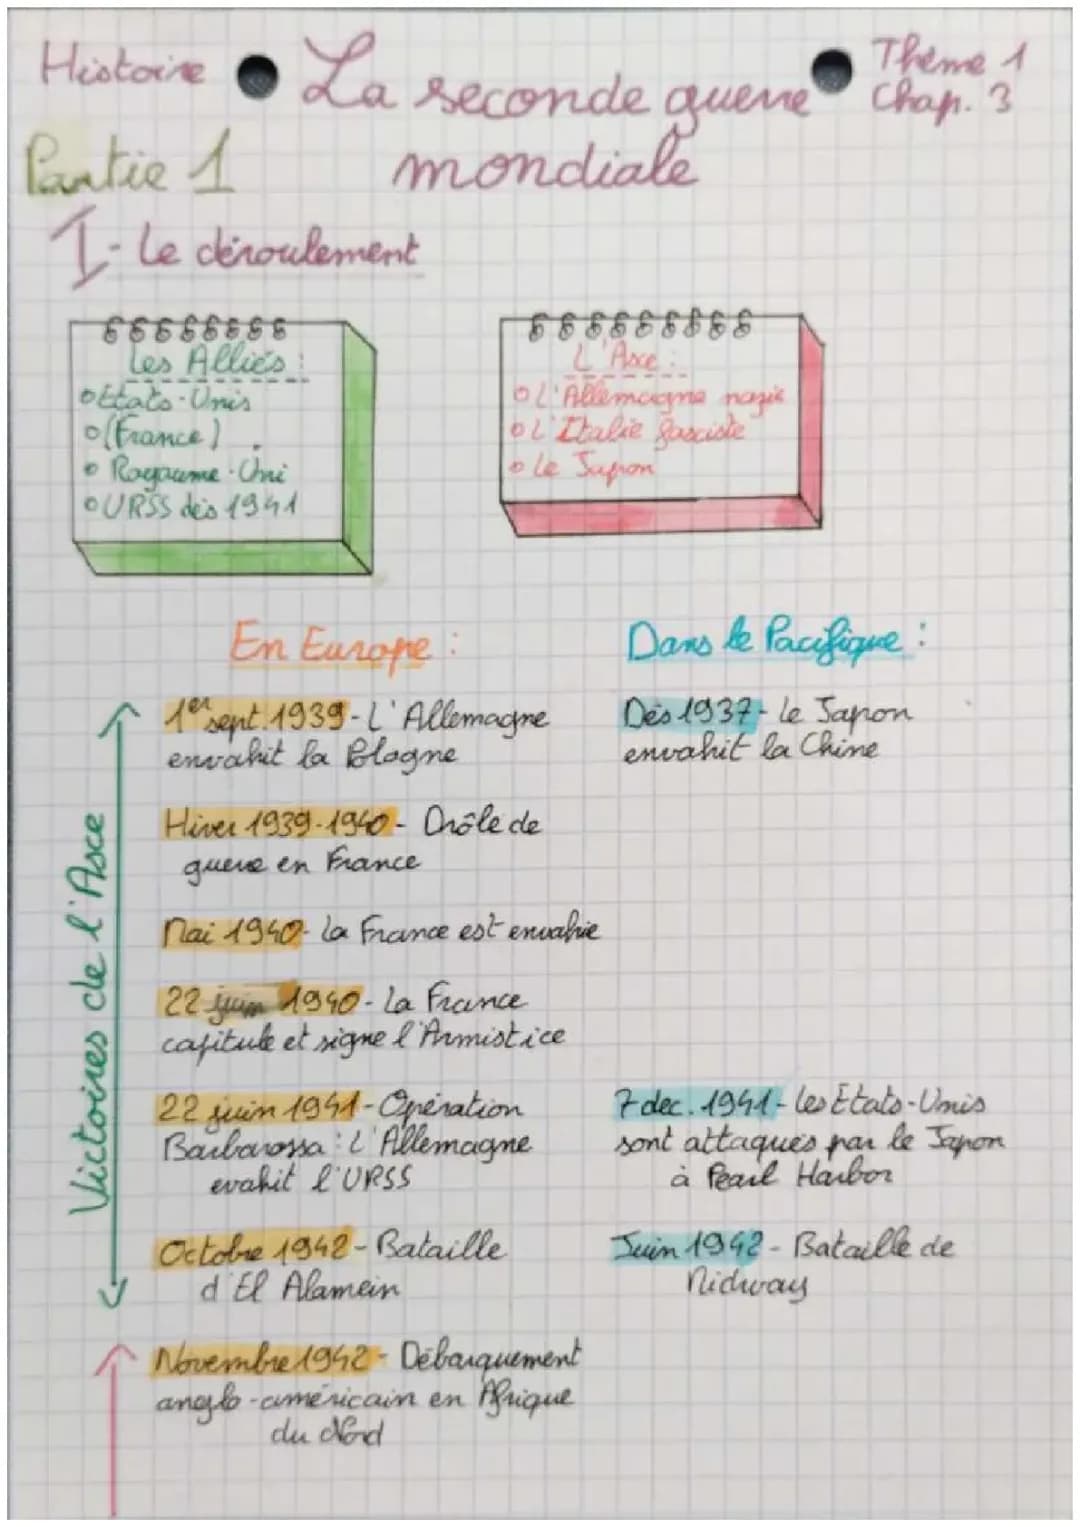 Histoire
La seconde guerre
mondiale
Thème 1
Chap. 3
Partie 1
I- Le déroulement
Les Alliés :
États-Unis
(France)
Royaume-Uni
URSS dès 1941
L'Asce :
L'Allemagne nazie
L'Italie fasciste
Le Japon
En Europe :
Dans le Pacifique :
Victoires de l'Asce
1er sept. 1939 - L'Allemagne
envahit la Pologne
Dès 1937 - Le Japon
envahit la Chine
Hiver 1939-1940 - Drôle de
guerre en France
Mai 1940 - La France est envahie
22 juin 1940 - La France
capitule et signe l'Armistice
22 juin 1941 - Opération
Barbarossa : L'Allemagne
evahit l'URSS
7 dec. 1941 - Les États-Unis
sont attaqués par le Japon
à Pearl Harbor
Octobre 1942 - Bataille
d'El Alamein
Juin 1942 - Bataille de
Midway
Novembre 1942 - Débarquement
anglo-américain en Afrique
du Nord